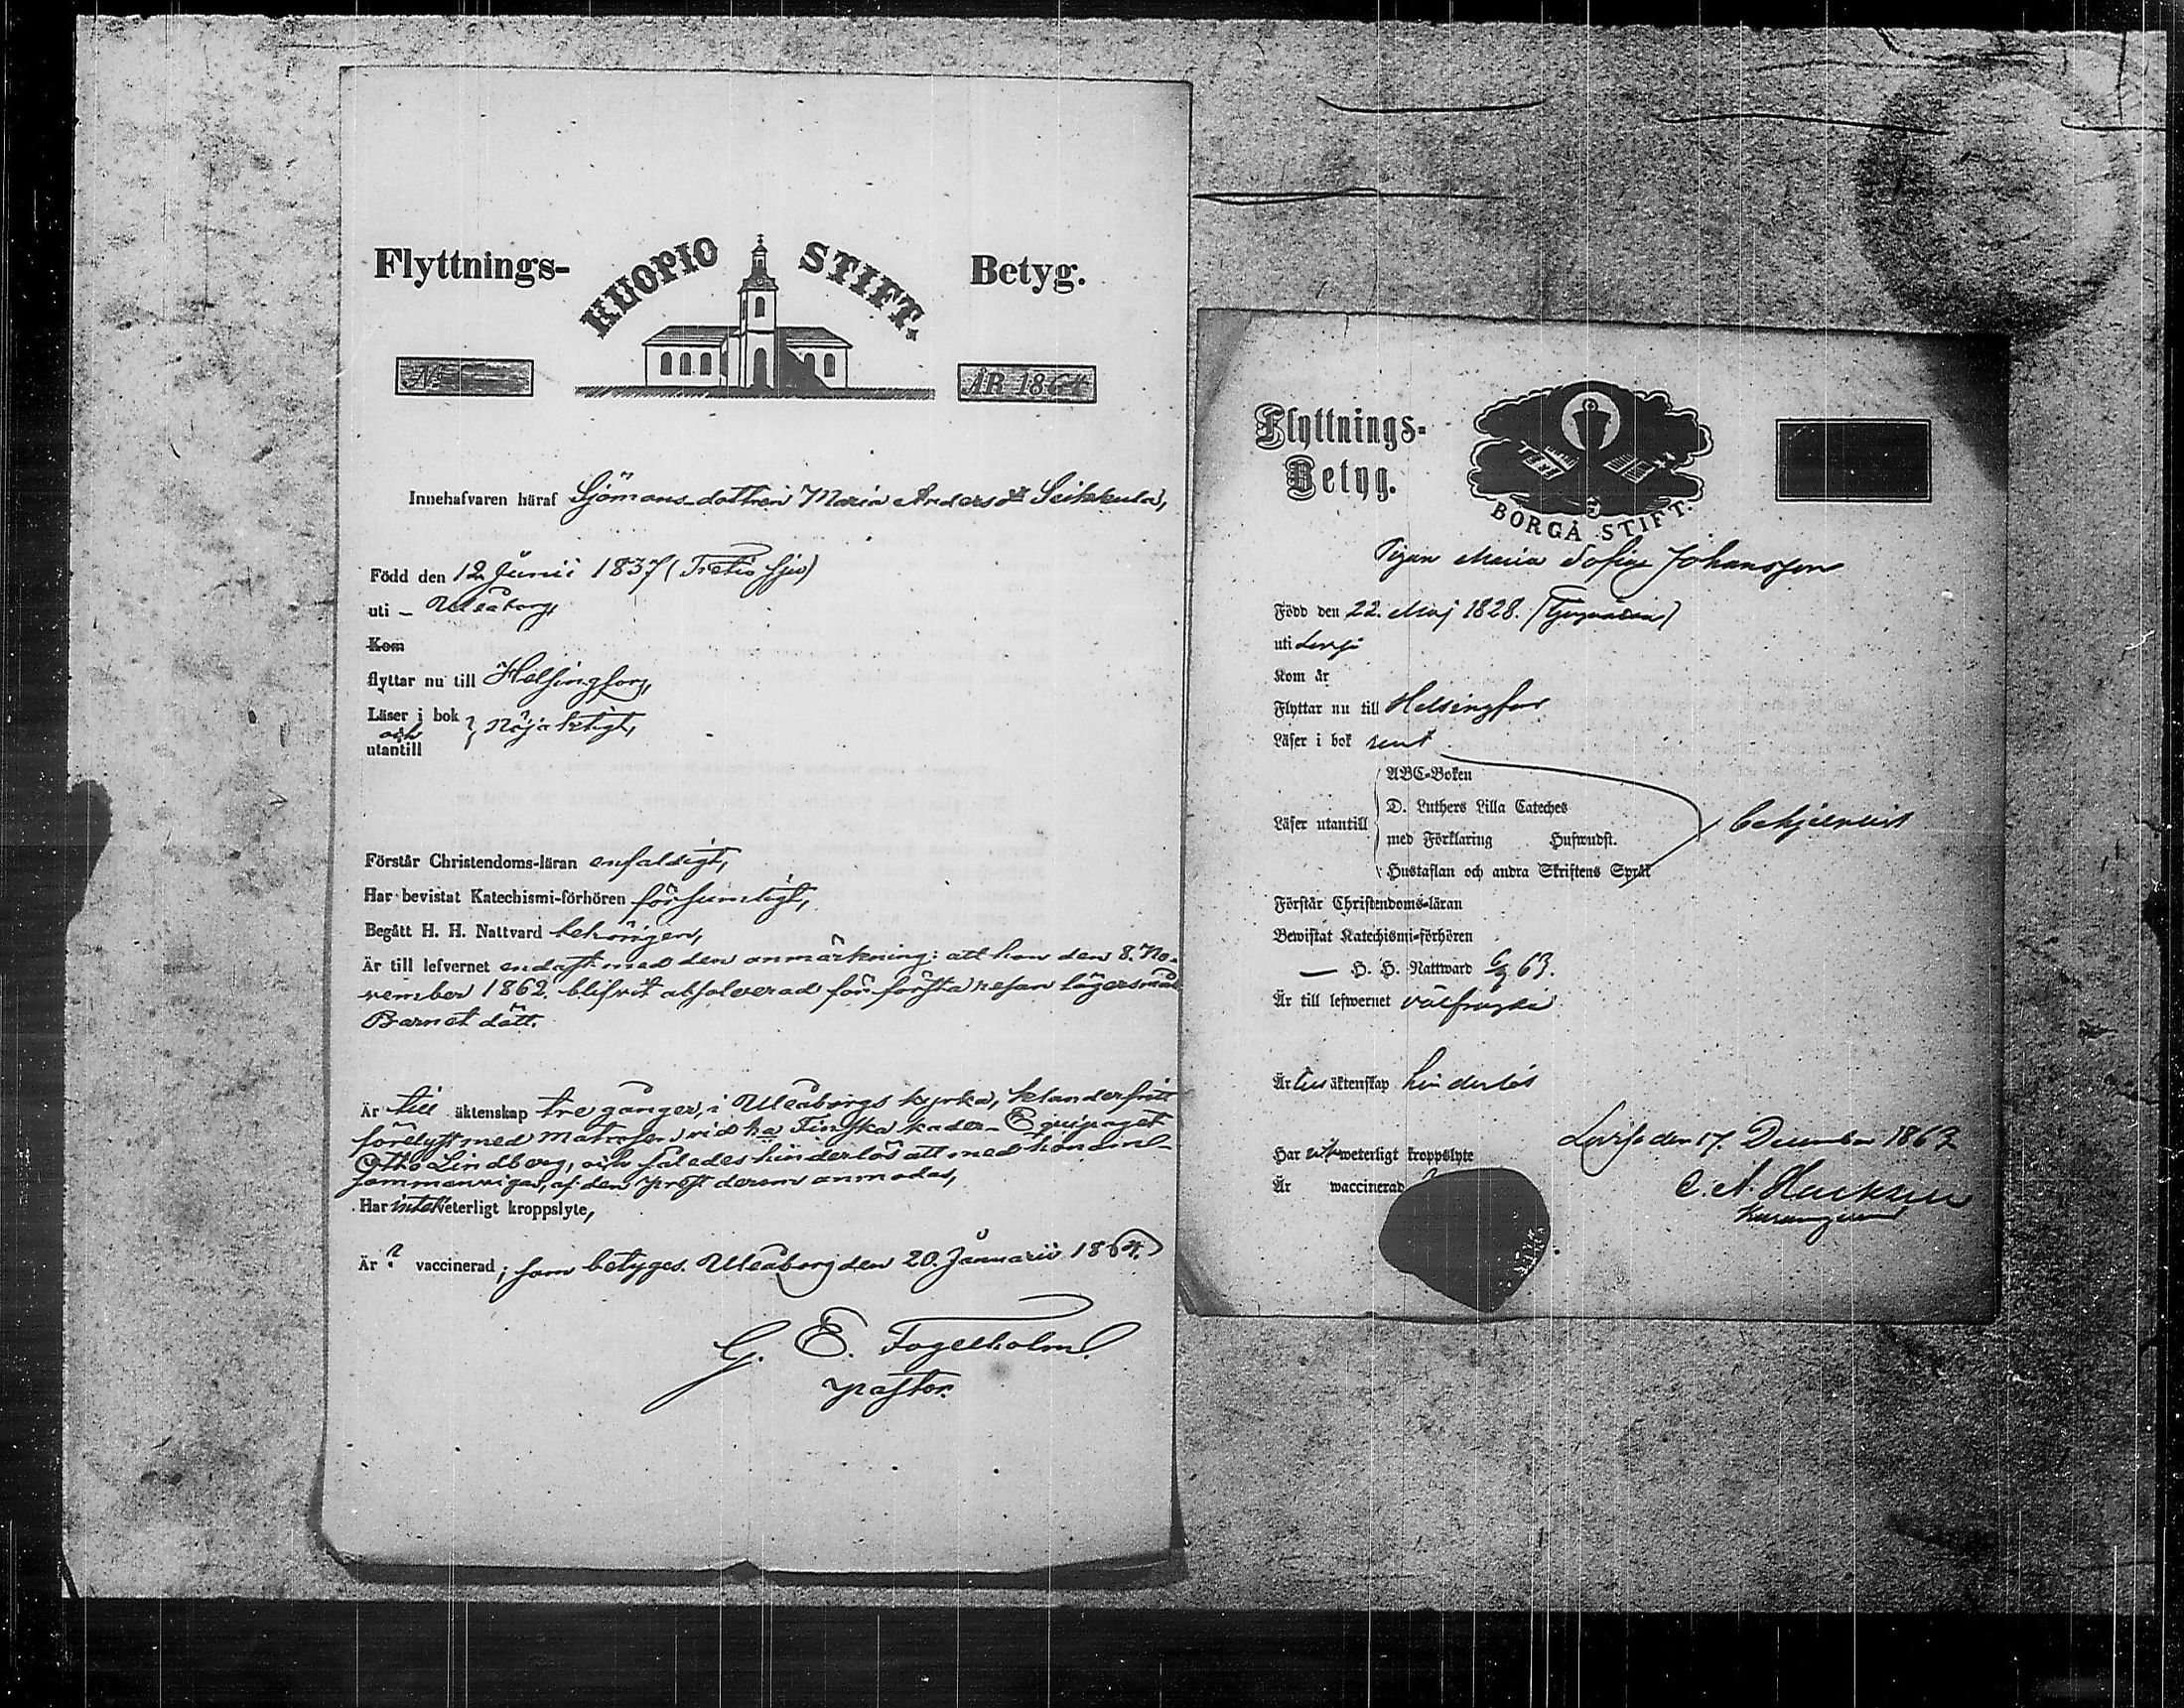 Flyttnings- KUOPIO STIFT. Betyg.
N:o ÅR 1864
Innehafvaren häraf Sjömans-dottren Maria Andersdr Seikkula,
Född den 12 Junii 1837 (Tretio sju)
uti – Uleåborg,
Kom
flyttar nu till Helsingfors,
Läser i bok
och } nöjaktigt,
utantill
Förstår Christendoms-läran enfaldigt,
Har bevistat Katechismi-förhören försumligt,
Begått H. H. Nattvard behörigen,
Är till lefvernet endast med den anmärkning: att hon den 8. No-
vember 1862 blifvit absolverad för första resan lägersmål
Barnet dött.
Är till äktenskap tre gånger, i Uleåborgs kyrka, klanderfritt
förelyst med Matrosen vid 1:a Finska kader-Equipaget
Otto Lindberg, och således hinderlös att med honom
sammanvigas, af den prest derom anmodas,
Har intet veterligt kroppslyte,
Är ? vaccinerad; som betyges. Uleåborg den 20. Januarii 1864.
G. E. Fogelholm.
pastor.
Flyttnings-
Betyg.
BORGÅ STIFT.
Pigan Maria Sofia Johansson
Född den 22. Maj 1828. (Tjuguåtta)
uti Lovisa
Kom år
Flyttar nu till Helsingfors
Läser i bok rent
ABC-Boken
D. Luthers Lilla Cateches
Läser utantill
med Förklaring Huswudst.
Hustaflan och andra Skriftens Språk
Förstår Christendoms-läran
Bewistat Katechismi-förhören
— H. H. Nattward 6/9 63.
Är till lefwernet välfräjdad
Är till äktenskap hinderlös
Lovisa den 17. December 1863
Har weterligt kroppslyte
Är waccinerad
C. A.